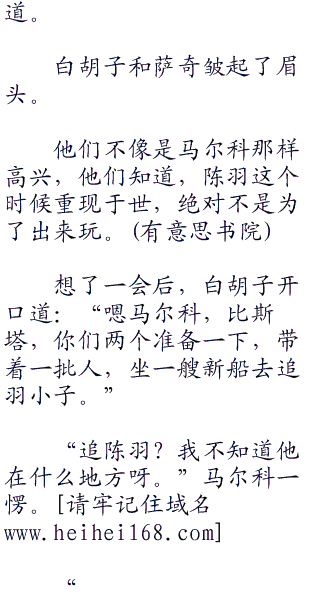 道。
白胡子和萨奇皱起了眉
头。
他们不像是马尔科那样
高兴，他们知道，陈羽这个
时候重现于世，绝对不是为
了出来玩。(有意思书院)
想了一会后，白胡子开
口道：“嗯马尔科，比斯
塔，你们两个准备一下，带
着一批人，坐一艘新船去追
羽小子。”
“追陈羽？我不知道他
在什么地方呀。”马尔科一
愣。[请牢记住域名
www.heihei168.com]
“